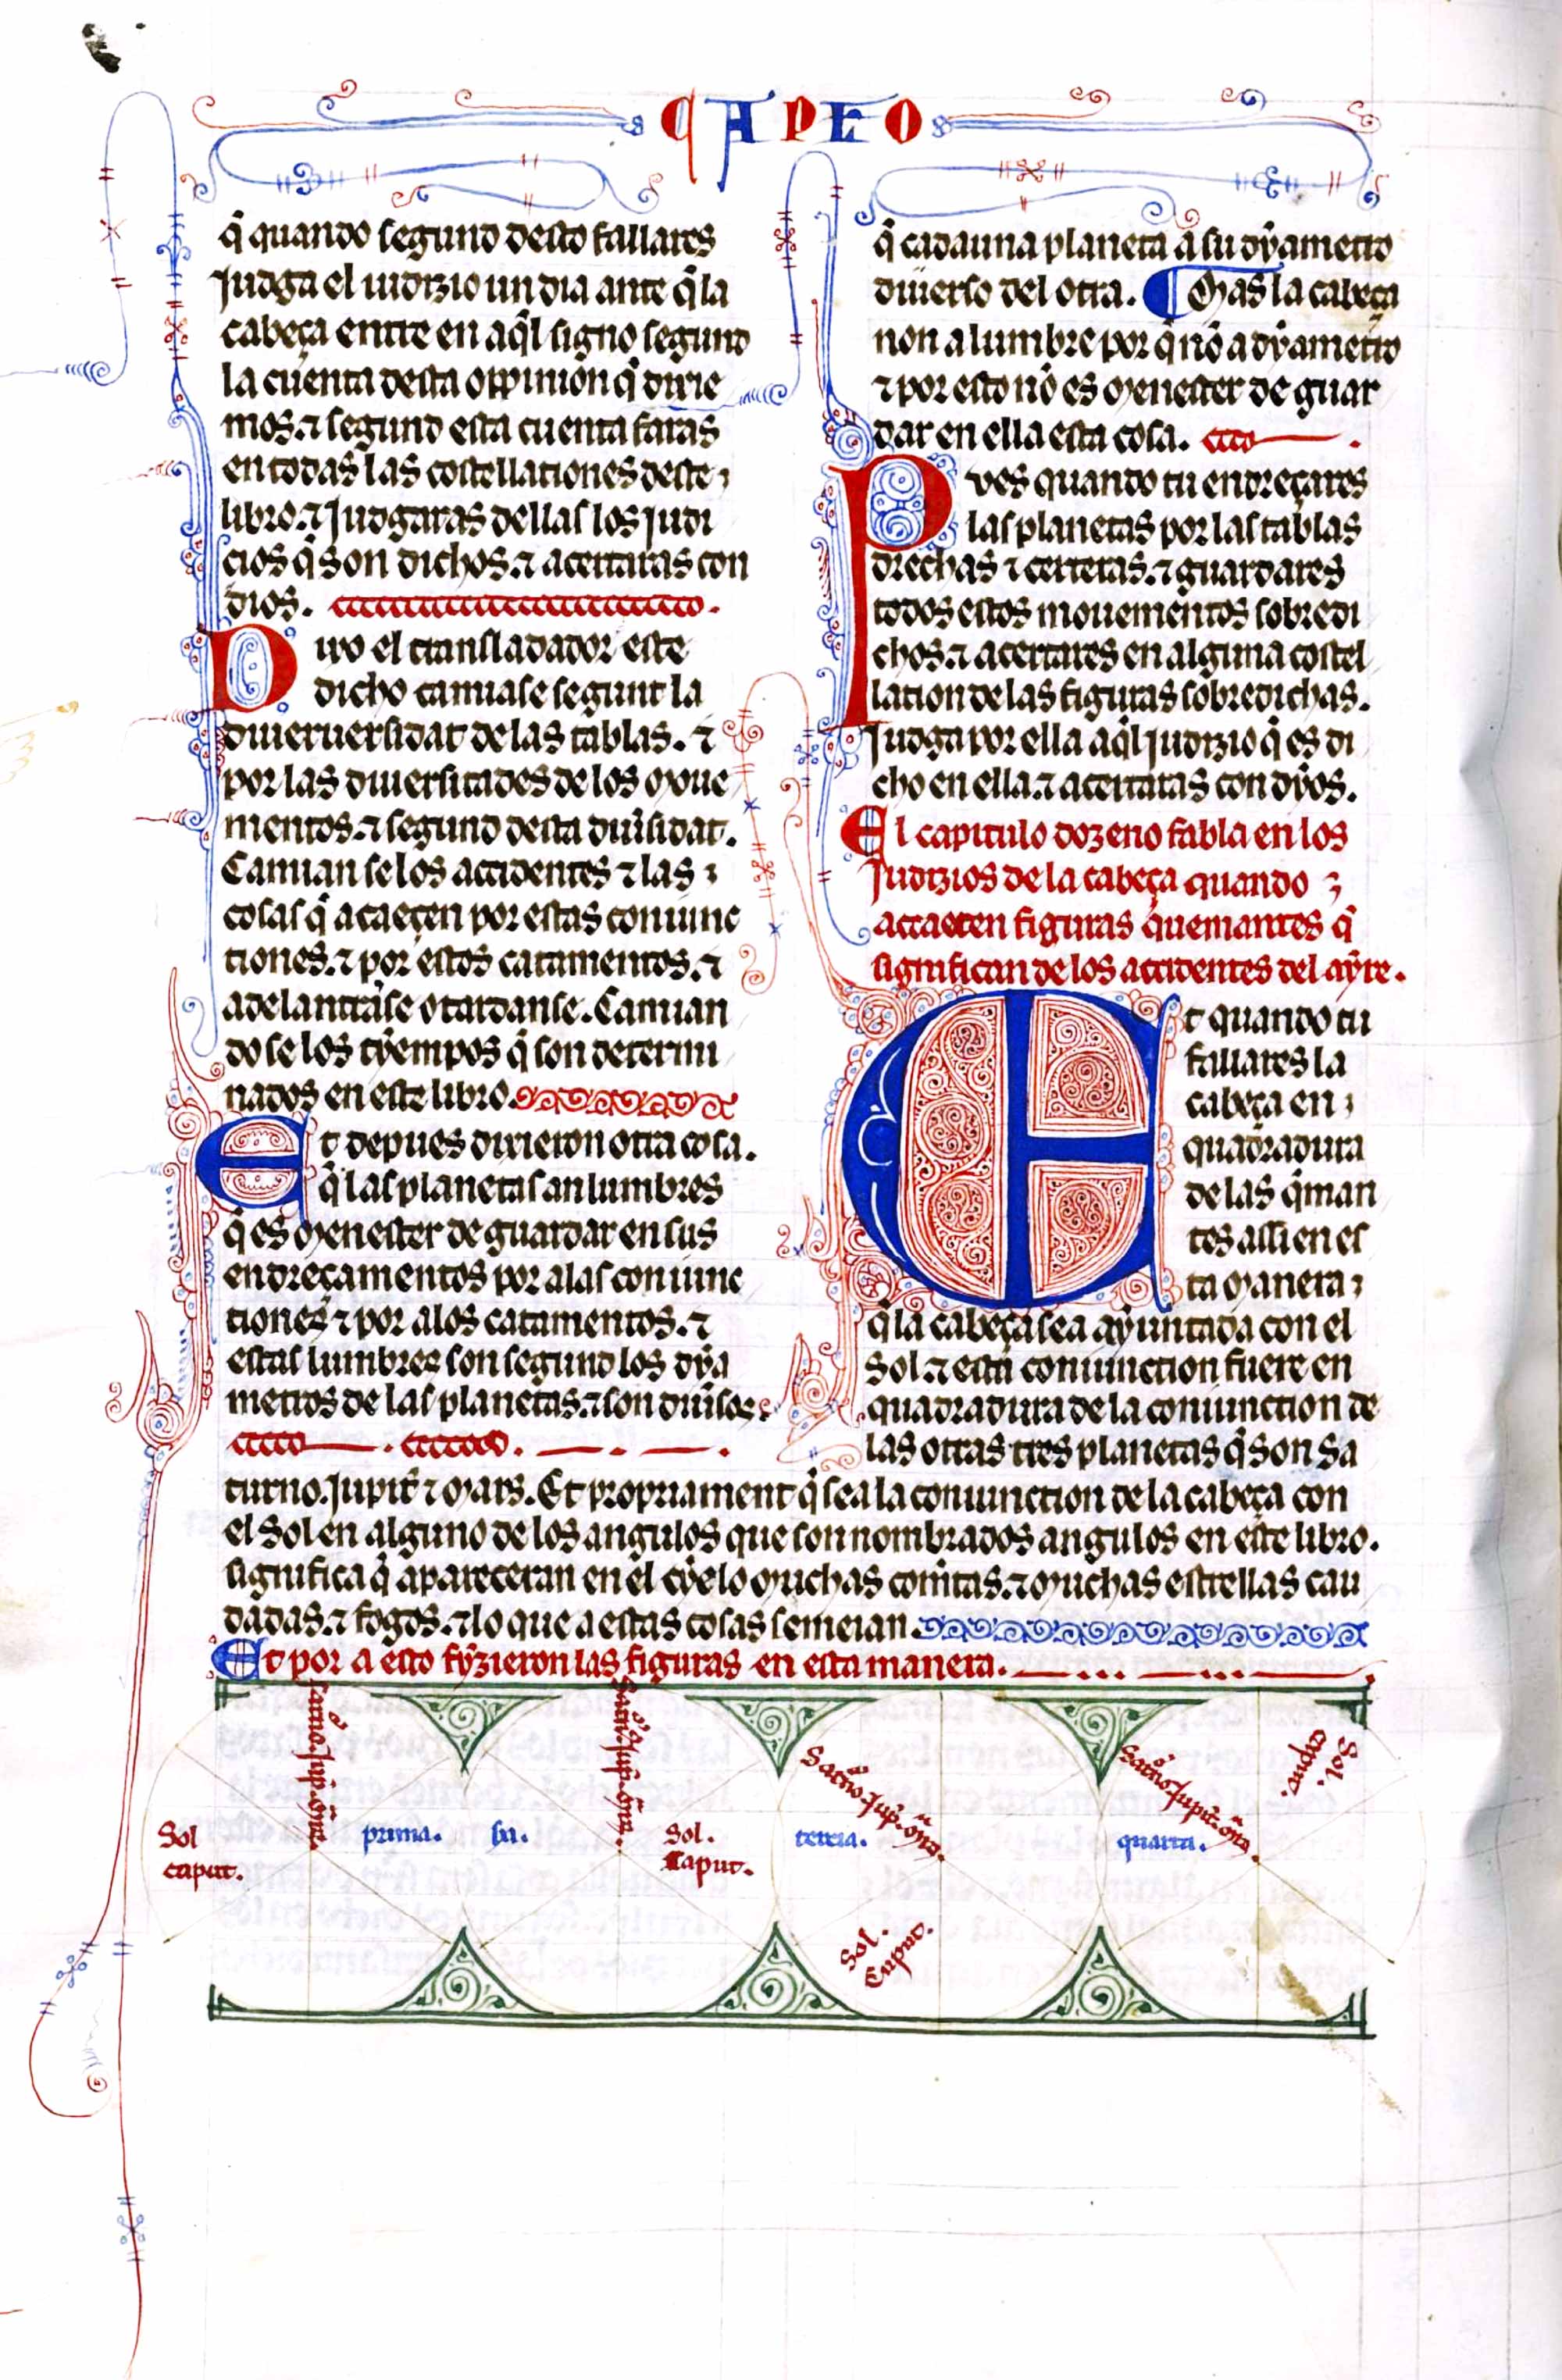 CAPEO
q̃ quando segund desto fallares
Judga el iudizio un dia ante q̃ la
cabeça entre en aq̃l signo segund
la cuenta desta oppinion q̃ dixie
mos. ⁊ segund esta cuenta faras
en todas las costellationes deste
libro. ⁊ Judgaras dellas los Judi
cios q̃ son dichos. ⁊ acertaras con
dios.
Dixo el transladador este
dicho camiase segunt la
diuieruersidat de las tablas. ⁊
por las diuersitades de los moue
mentos. ⁊ segund desta diũsidat.
Camian se los accidentes ⁊ las
cosas q̃ acaeçen por estas coniunc
tiones. ⁊ por estos catamentos. ⁊
adelantrãse o tardanse. Camian
do se los tẏempos q̃ son determi
nados en este libro.
Et depues dixieron otra cosa.
q̃ las planetas an lumbres
q̃ es menester de guardar en sus
endreçamentos por a las coniunc
tiones ⁊ por a los catamentos. ⁊
estas lumbres son segund los dẏa
metros de las planetas. ⁊ son diũsos
q̃ cadauna planeta a su dẏametro
diuerso del otra. Mas la cabeça
non alumbre por q̃ nõ a dẏametro
⁊ por esto nõ es menester de guar
dar en ella esta cosa.
Pves quando tu endreçares
las planetas por las tablas
drechas ⁊ certeras. ⁊ guardares
todos estos mouementos sobredi
chos. ⁊ acertares en alguna costel
lation de las figuras sobredichas.
Judga por ella aq̃l Judizio q̃ es di
cho en ella. ⁊ acertaras con dẏos.
El capitulo dozeno fabla en los
Judizios de la cabeça quando
accaecen figuras quemantes q̃
significan de los accidentes del aẏre.
Et quando tu
fallares la
cabeça en
quadradura
de las q̃man
tes assi en es
ta manera
q̃ la cabeça sea aẏuntada con el
Sol. ⁊ esta coniunction fuere en
quadradura de la coniunction de
las otras tres planetas q̃ son Sa
turno. Jupit̃ ⁊ Mars. Et propriament q̃ sea la coniunction de la cabeça con
el Sol en alguno de los angulos que son nombrados angulos en este libro.
significa q̃ apareceran en el cẏelo muchas comitas. ⁊ muchas estrellas cau
dadas. ⁊ fogos. ⁊ lo que a estas cosas semeian.
Et por a esto fẏzieron las figuras en esta manera.
Sol
caput.
prima.
Sol.
Caput.
tercia.
Sol.
Caput.
quarta.
Sol.
caput.